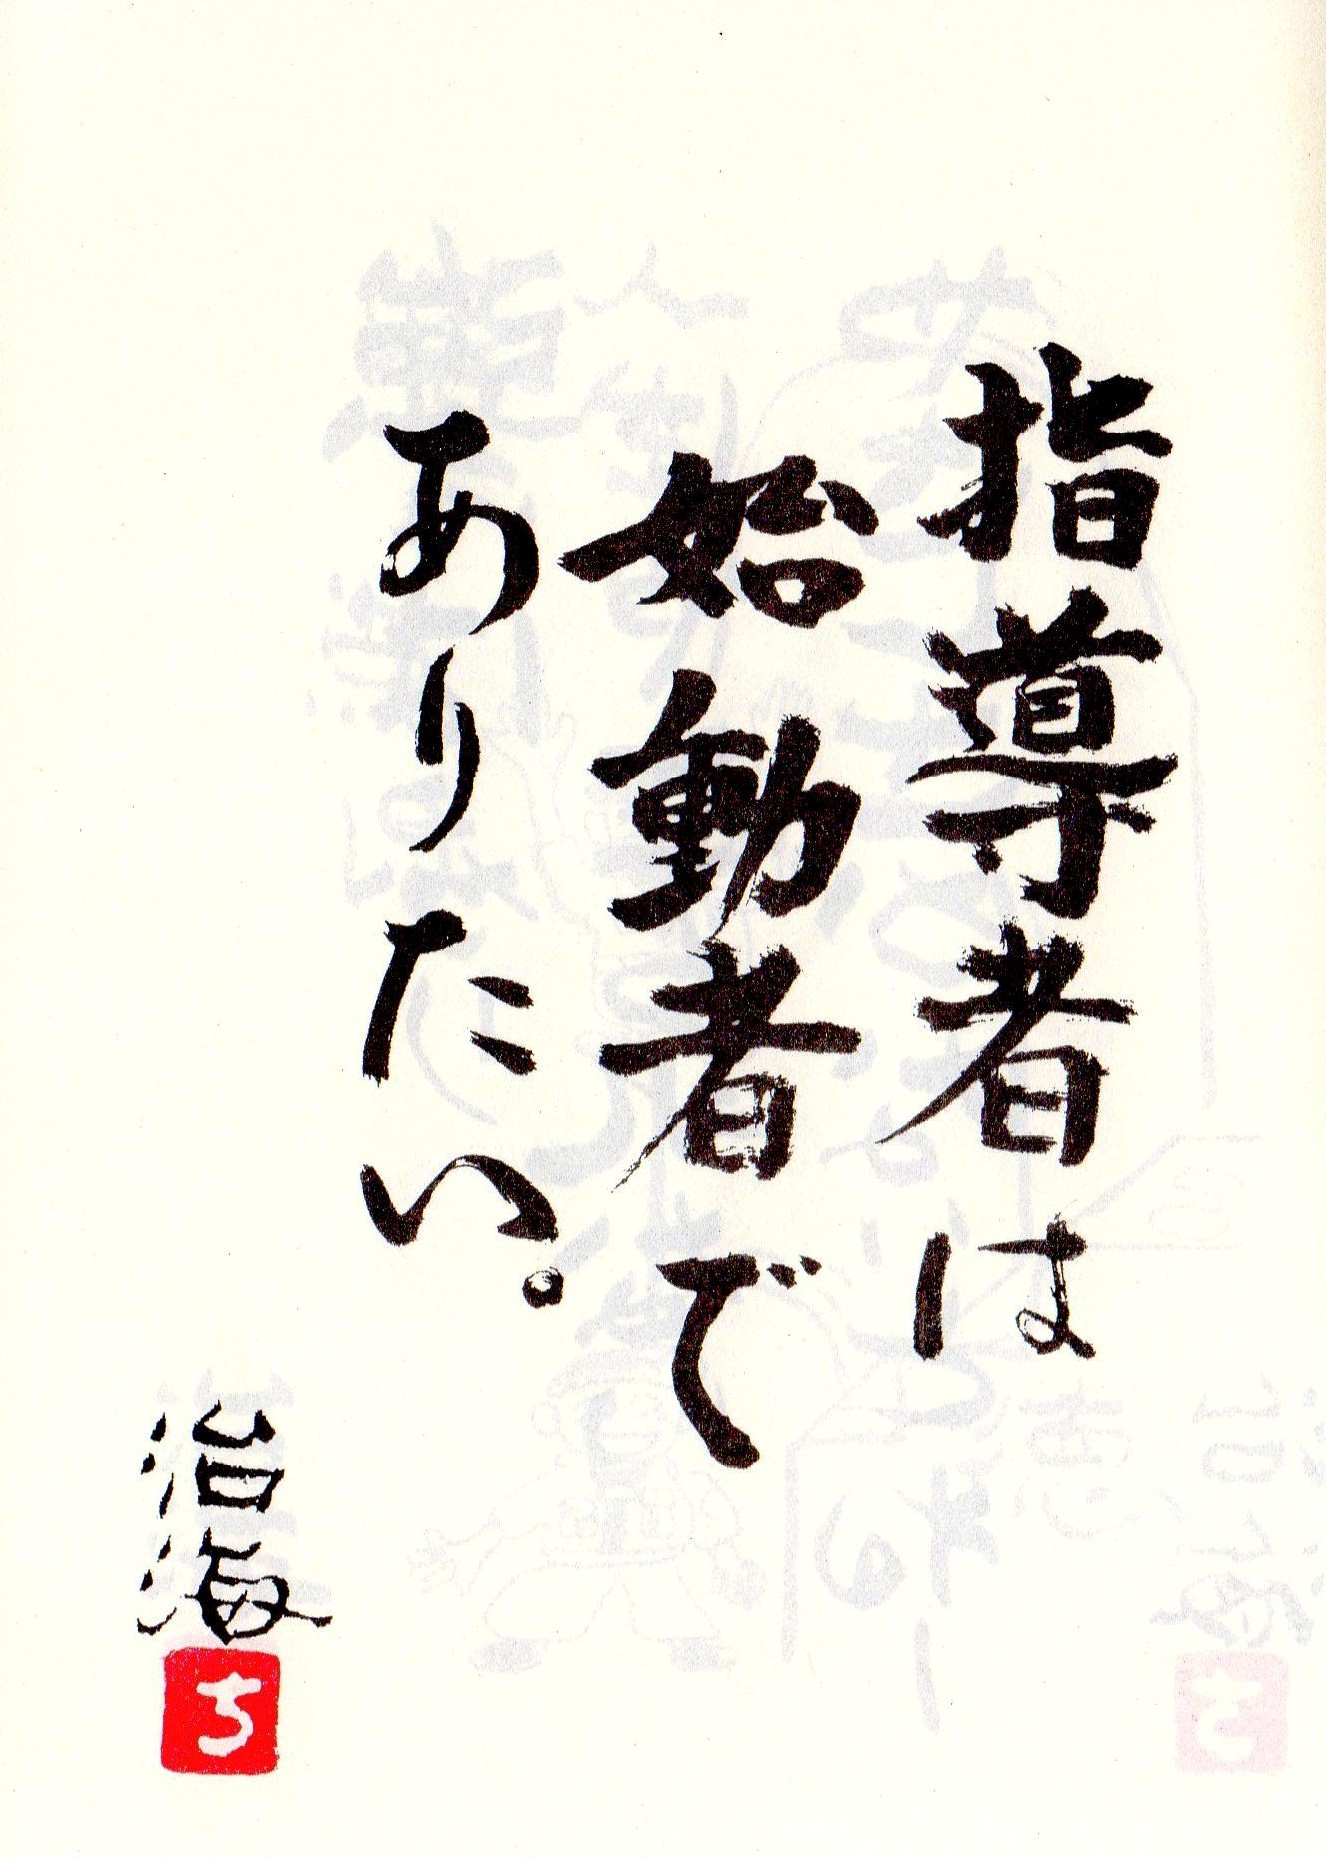 指導者は
始動者で
ありたい。
治海
ち